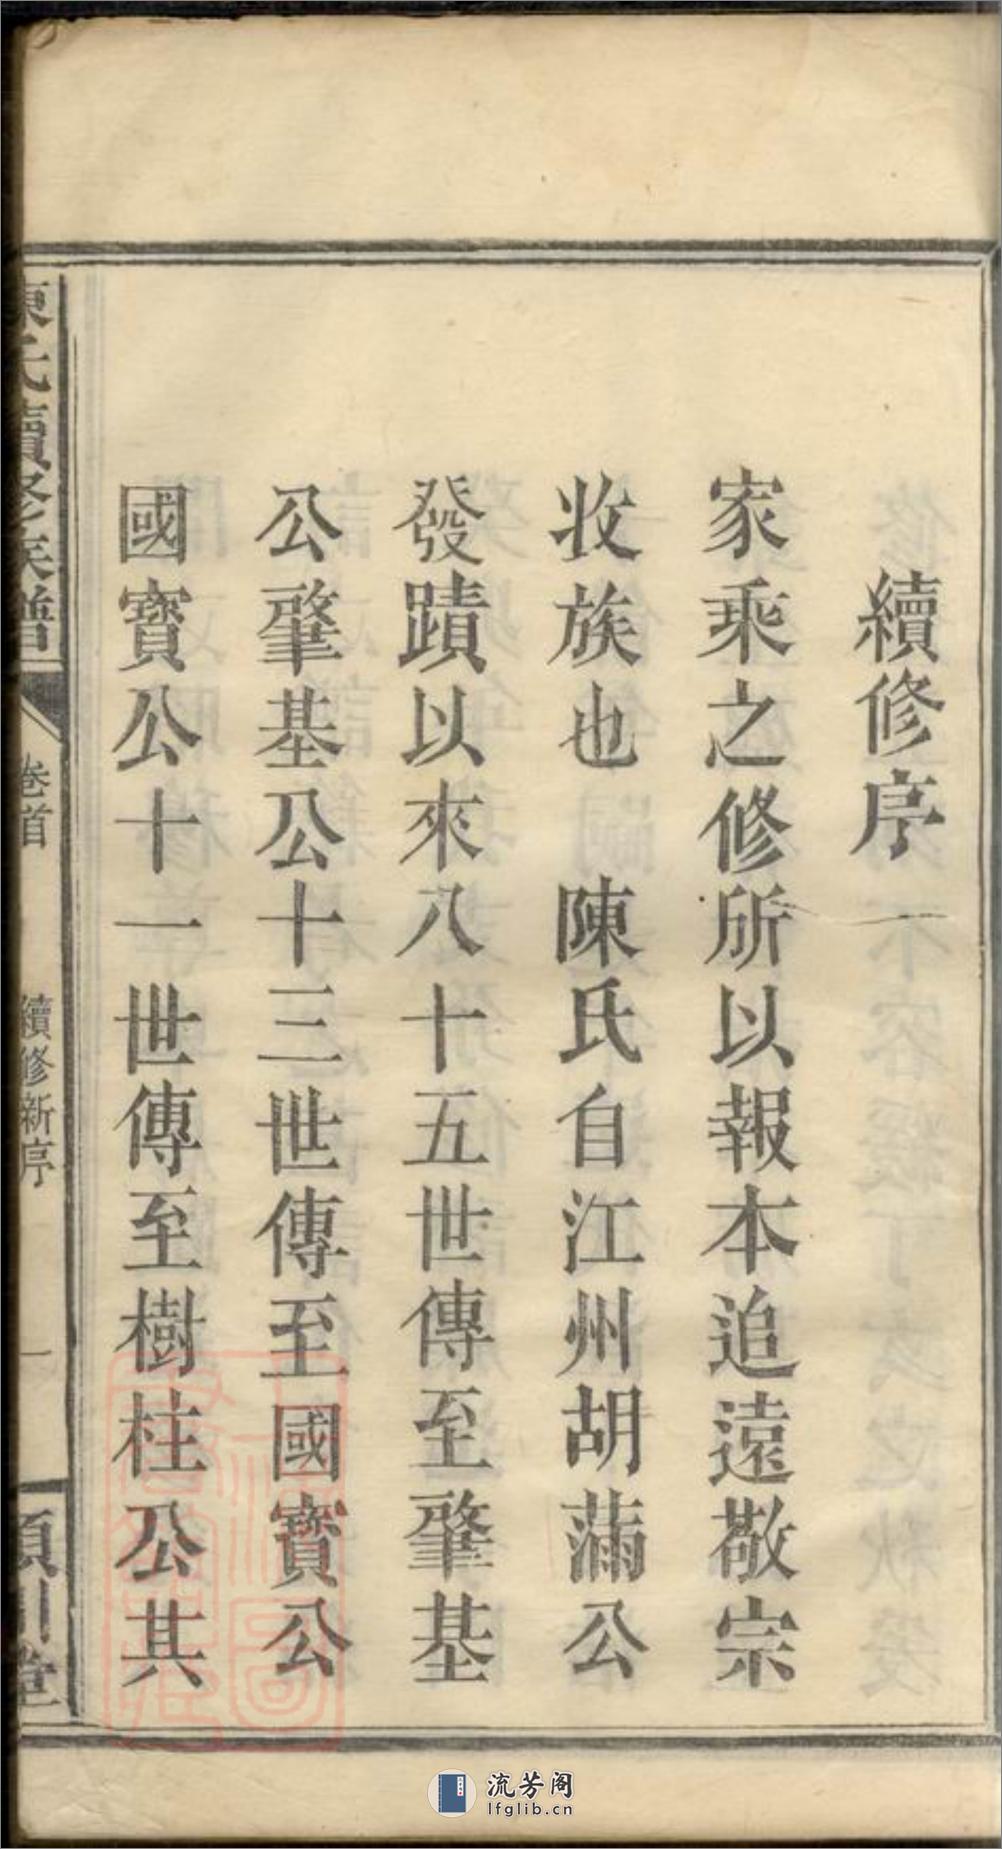 續修序
家乘之修所以報本追遠敬宗
收族也　陳氏自江州胡滿公
發蹟以來八十五世傳至肇基
公肇基公十三世傳至國寳公
國寳公十一世傳至樹柱公其
陳氏續修族譜
卷首
續修新序
一
潁川堂
流芳阁
lfglib.cn